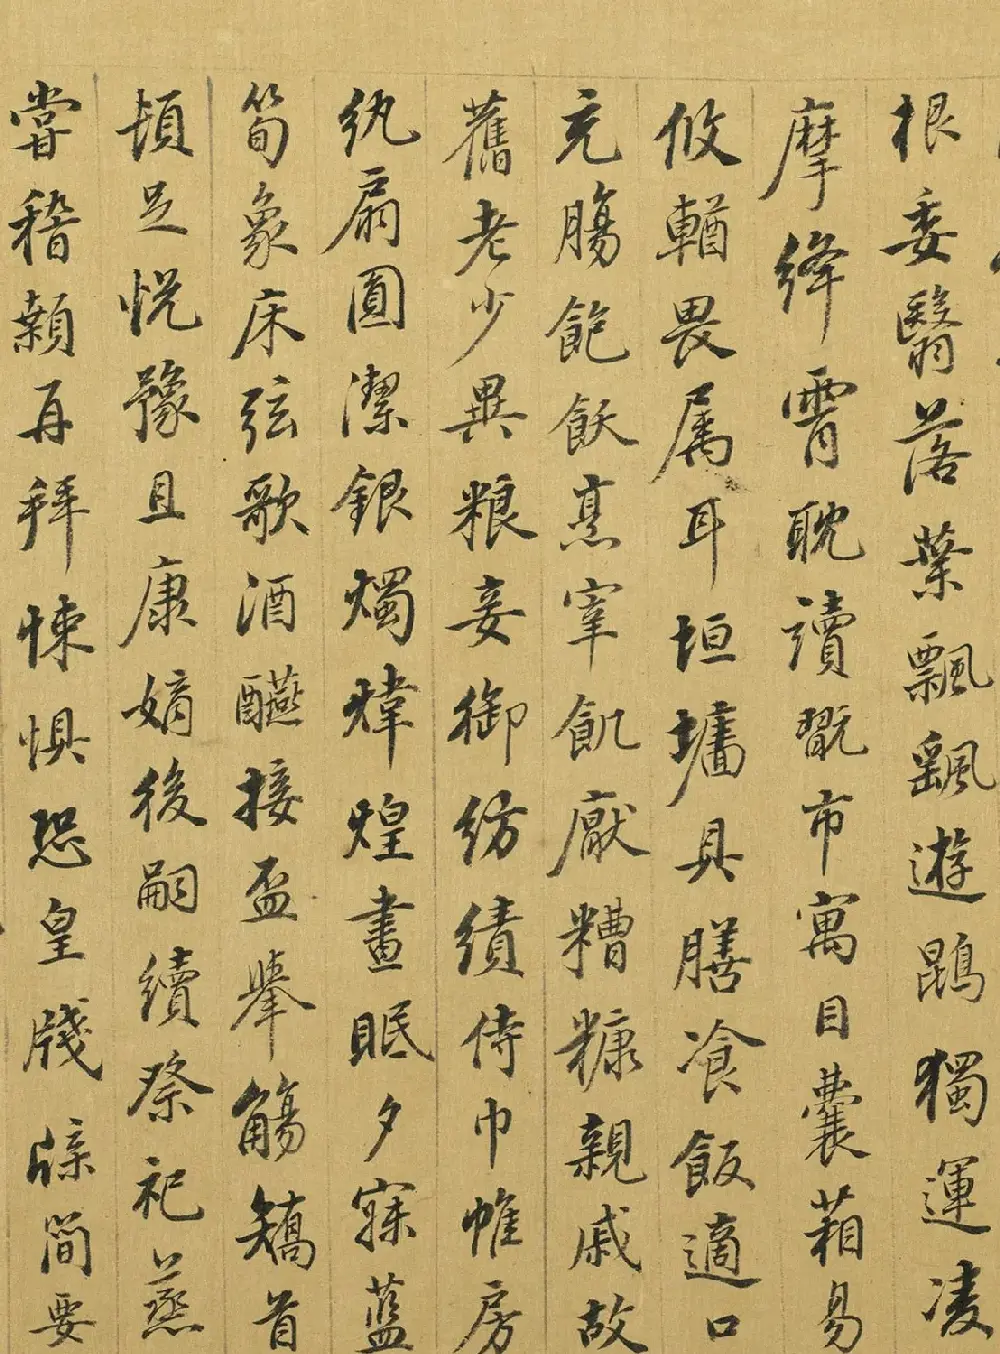 根委翳落葉飄飖遊鵾獨運凌
摩絳霄耽讀翫市寓目囊葙易
攸輶畏属耳垣墻具膳飡飯適口
充腸飽飫烹宰飢厭糟糠親戚故
舊老少異粮妾御紡績侍巾帷房
紈扇圓潔銀燭煒煌晝眠夕寐藍
筍象床弦歌酒醼接盃舉觴矯首
頓足悦豫且康嫡後嗣續祭祀蒸
甞稽顙再拜悚懼恐皇牋牒簡要